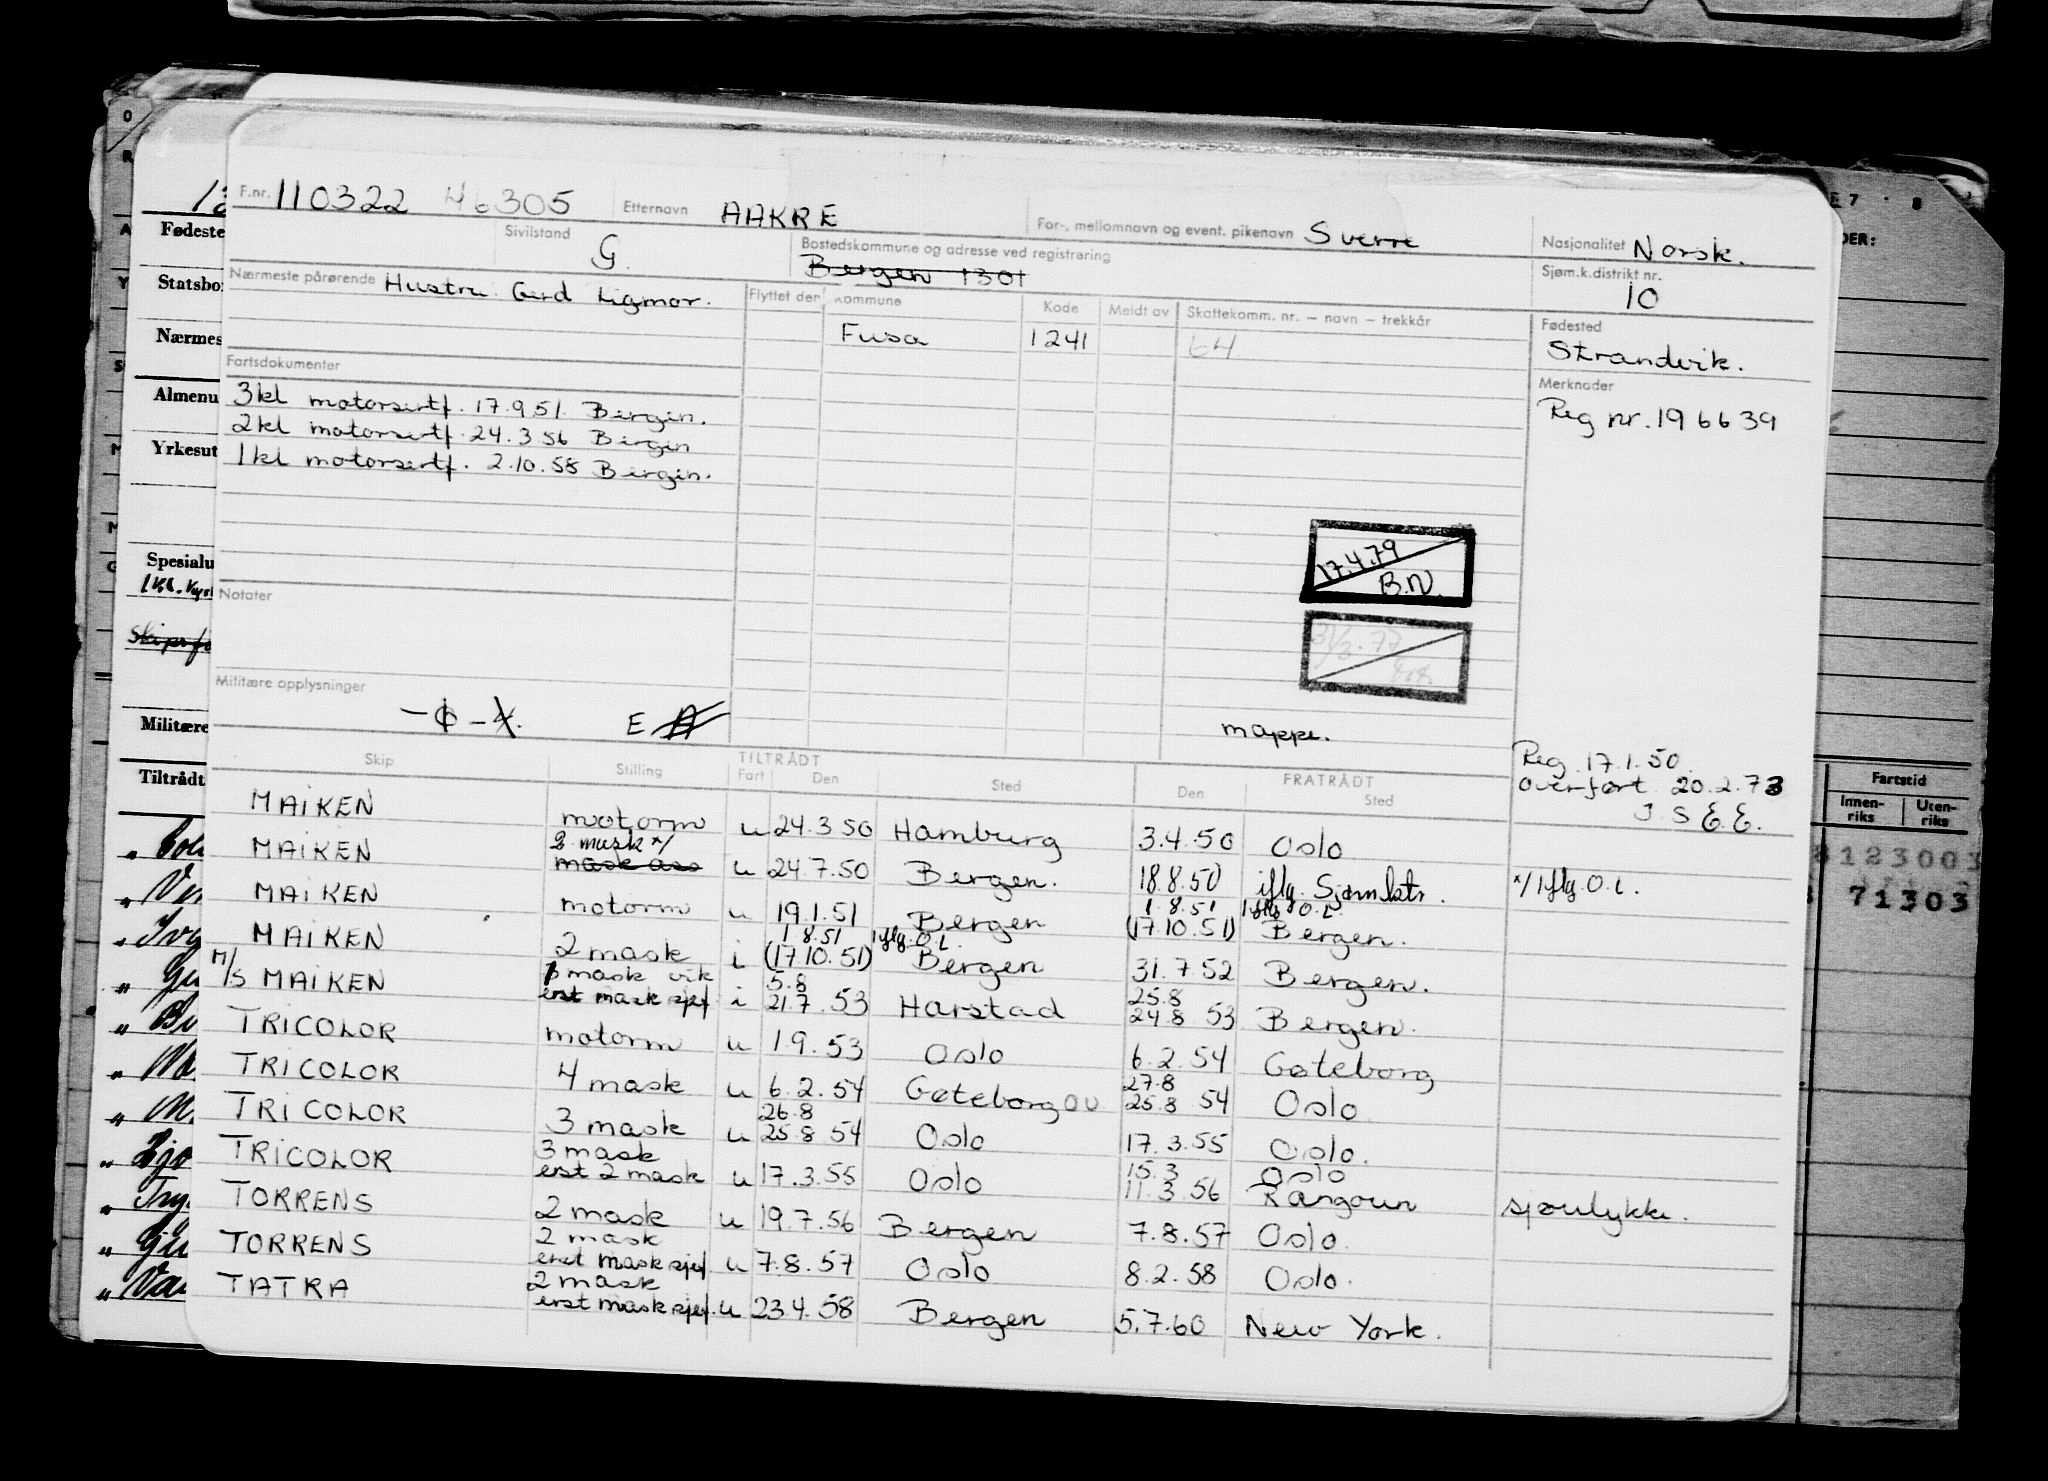 F.nr. 110322 46305 Etternavn AAKRE For-, mellomnavn og event. pikenavn Sverre Nasjonalitet Norsk.
Sivilstand G. Bostedskommune og adresse ved registrering Bergen 1301 Sjøm.k.distrikt nr. 10
Nærmeste pårørende Hustru. Gerd Ligmor. Flyttet den Kommune Kode Meldt av Skattekomm. nr. – navn – trekkår Fødested
Fusa 1241 64 Strandvik.
Fartsdokumenter Merknader
3 kl motorsertf. 17.9.51. Bergen. Reg nr. 196639
2 kl motorsertf. 24.3.56 Bergen
1 kl motorsertf. 2.10.58 Bergen.
17.4.79
B.N.
Notater
31/3.77
Militære opplysninger
E
mappe.
Reg. 17.1.50.
overført 20.2.73
J. S E. E.
Skip Stilling TILTRÅDT Fart Den Sted FRATRÅDT Den Sted
MAIKEN motorm u 24.3.50 Hamburg 3.4.50 Oslo
MAIKEN 2 mask x/ mask ass u 24.7.50 Bergen. 18.8.50 iflg. Sjømktr. x/ Iflg. O.L.
MAIKEN motorm u 19.1.51 Bergen 1.8.51 Iflg O.L. (17.10.51) Bergen.
MAIKEN 2 mask i 1 8.51 Iflg. O.L. (17.10.51) Bergen 31.7.52 Bergen.
M/S MAIKEN 1 mask vik erst mask sjef i 5.8 21.7.53 Harstad 25.8 24.8 53 Bergen.
TRICOLOR motorm u 1.9.53 Oslo 6.2.54 Gøteborg
TRICOLOR 4 mask u 6.2.54 Gøteborg OU 27.8 25.8 54 Oslo
TRICOLOR 3 mask u 26.8 25.8 54 Oslo 17.3.55 Oslo.
TRICOLOR 3 mask erst 2 mask u 17.3.55 Oslo 15.3 11.3.56 Oslo Rangoun sjøulykke.
TORRENS 2 mask u 19.7.56 Bergen 7.8.57 Oslo.
TORRENS 2 mask erst mask sjef u 7.8.57 Oslo 8.2.58 Oslo.
TATRA 2 mask erst mask sjef. u 23.4.58 Bergen 5.7.60 New York.
Fødeste
Statsbo
Nærmes
Almenu
Yrkesut
Spesialu
Militære
Tiltrådt
DER:
Fartstid
Innen-riks Uten-riks
123003
71303